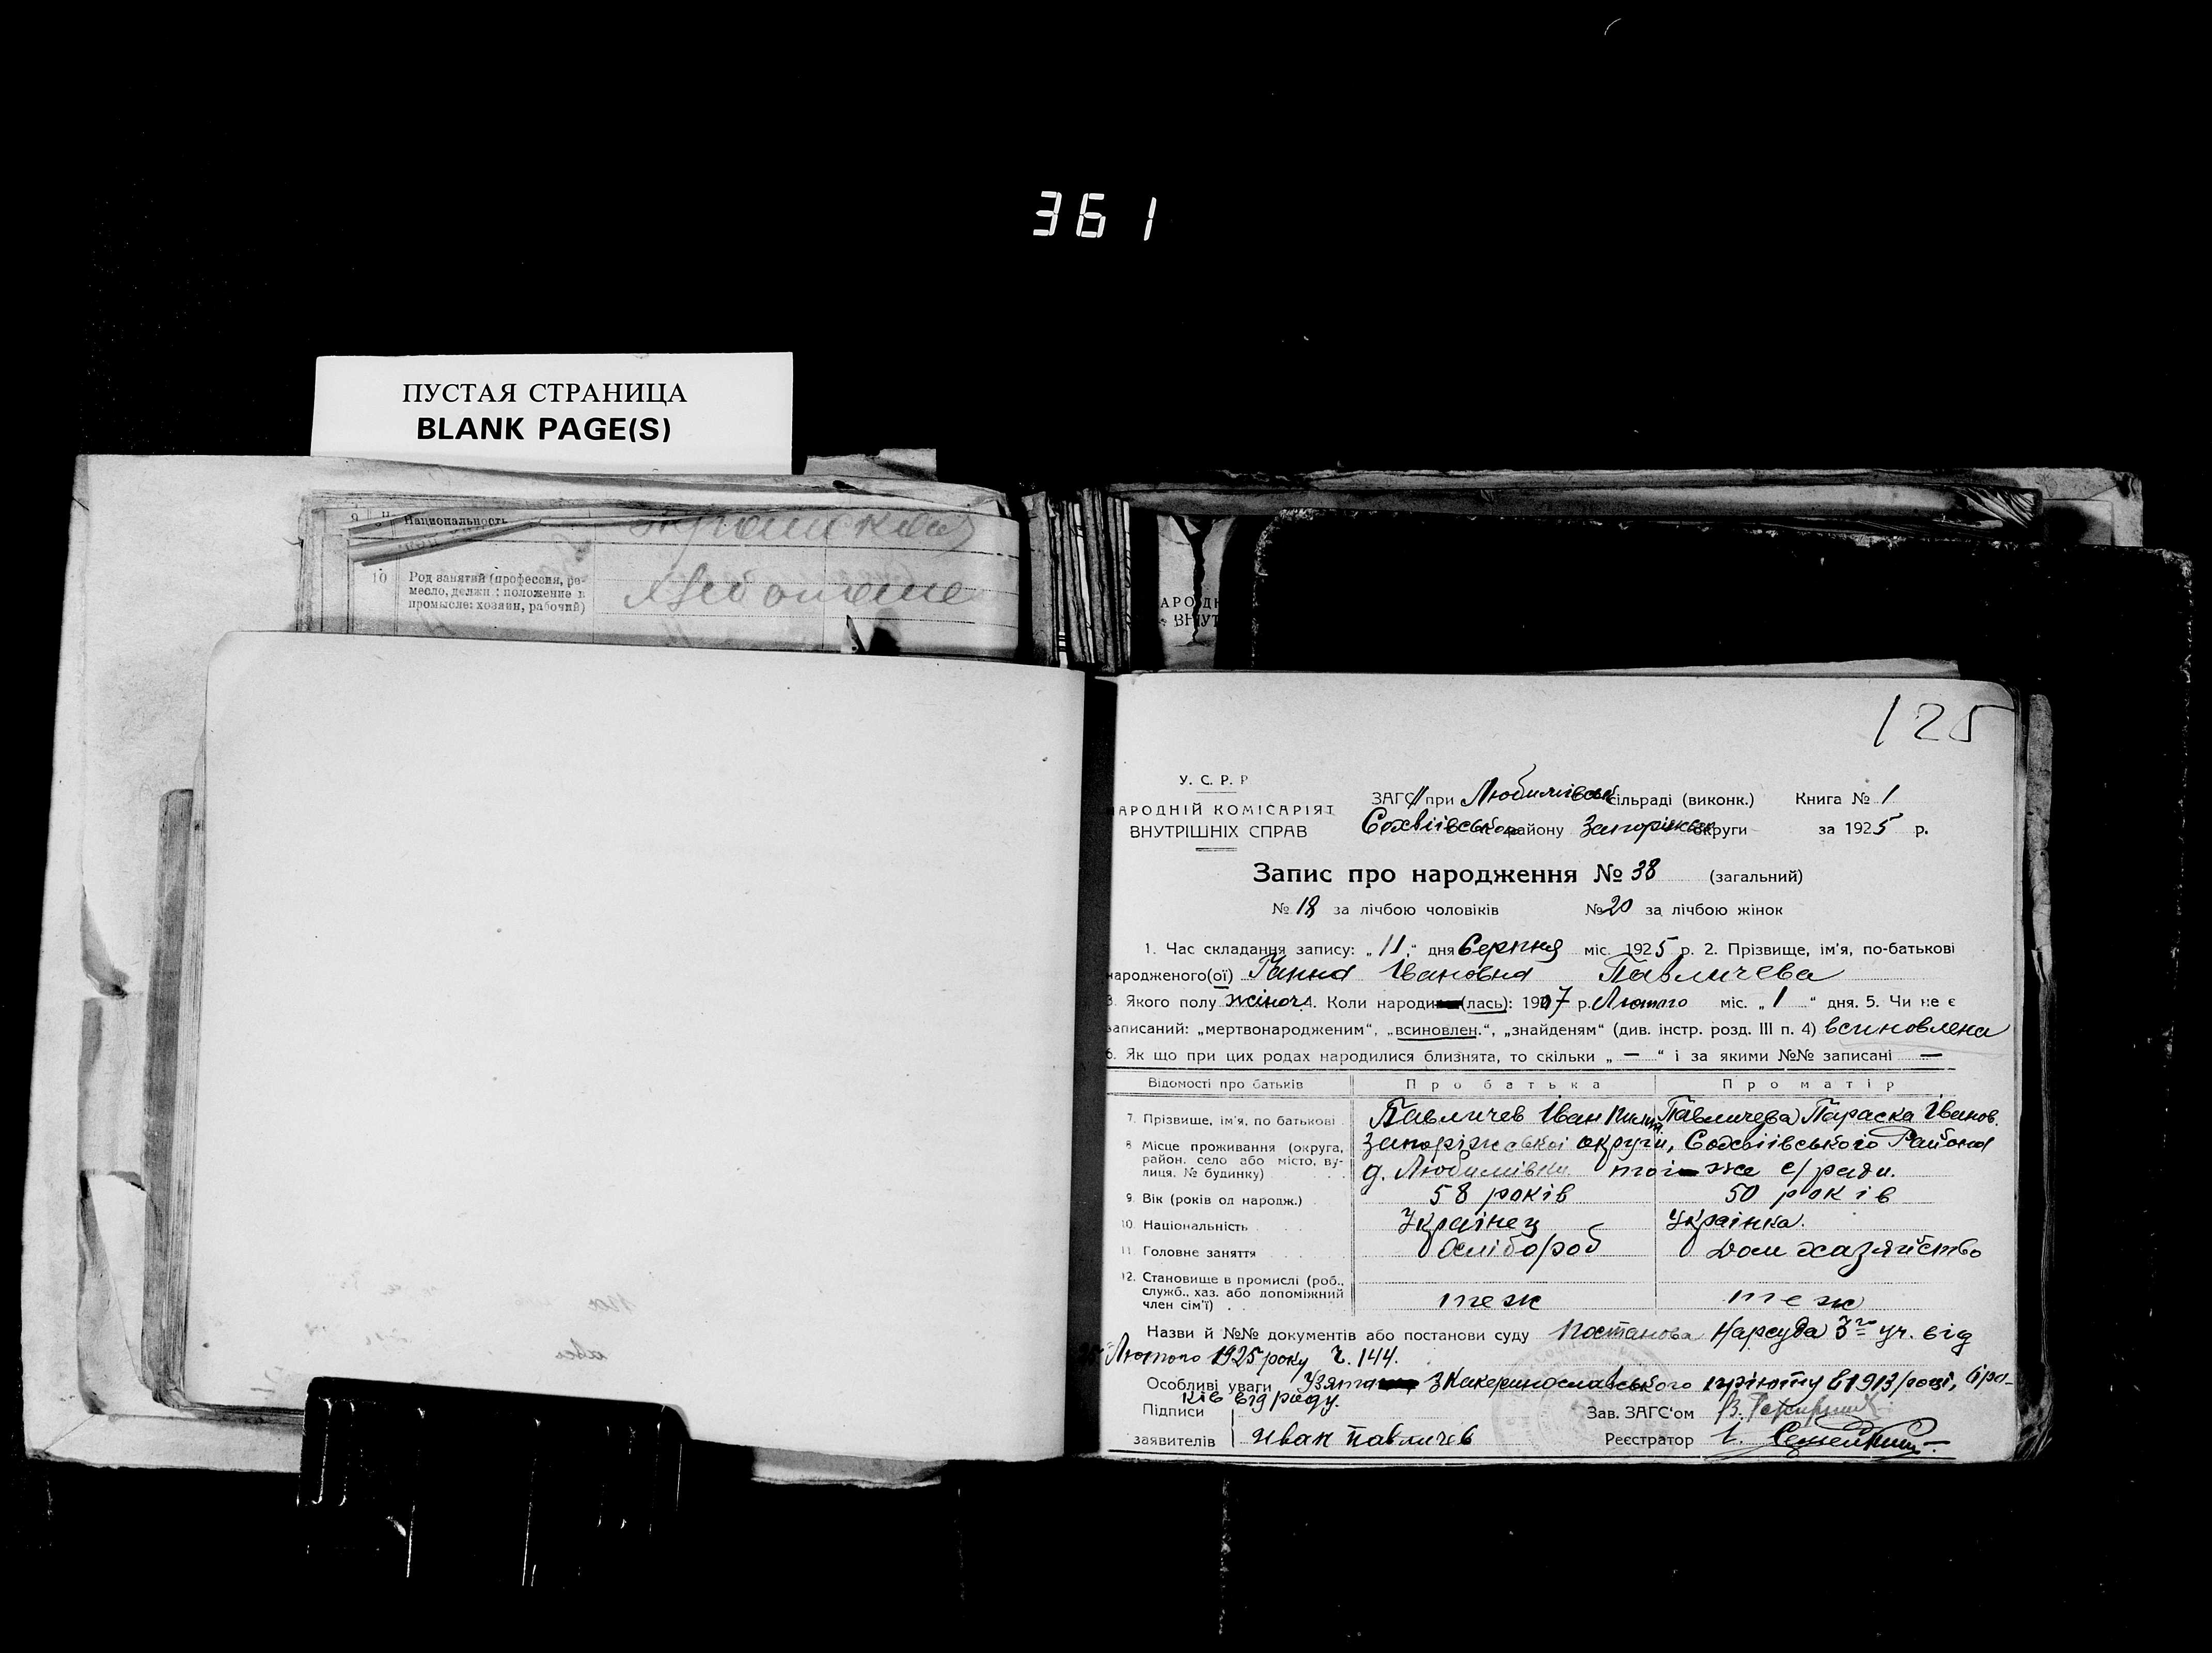 361
ПУСТАЯ СТРАНИЦА
BLANK PAGE(S)
Национальность
10 Род занятий (профессия, ре-
месло, должн.: положение в
промысле: хозяин, рабочий)
АРОДН
ВНУТ
125
У. С. Р. Р
АРОДНІЙ КОМІСАРІЯТ
ВНУТРІШНІХ СПРАВ
ЗАГС при Любимівськ сільраді (виконк.) Книга № 1
Софіївського району Запоріжськ округи за 1925 р.
Запис про народження № 38 (загальний)
№ 18 за лічбою чоловіків № 20 за лічбою жінок
1. Час складання запису: „11“ дня Серпня міс. 1925 р. 2. Прізвище, ім'я, по-батькові
народженого(ої) Ганна Івановна Павличева
3. Якого полу жіноч. 4. Коли народи (лась): 1907 р. Лютого міс. „1“ дня. 5. Чи не є
записаний: „мертвонародженим“, „всиновлен.“, „знайденям“ (див. інстр. розд. III п. 4) всиновлена
6. Як що при цих родах народилися близнята, то скільки „—“ і за якими №№ записані —
Відомості про батьків Про батька Про матір
7. Прізвище, ім'я, по батькові Павличев Іван Павличева Параска Іванов.
8 Місце проживання (округа, Запоріжської округи, Софіївського Района
район. село або місто, ву- д. Любимівки тої же с/ради.
лиця. № будинку)
9. Вік (років од народж.) 58 років 50 років
10. Національність Українец Українка.
11 Головне заняття Хлібороб Дом хазяйство
12. Становище в промислі (роб.,
служб., хаз. або допоміжний
член сім'ї) теж теж
Назви й №№ документів або постанови суду Постанова Нарсуда 3го уч. від
Лютого 1925 року Ч. 144.
Особливі уваги Узята з Катеринославського пріюту в 1913 році, 6 ро-
ків від роду.
Підписи Зав. ЗАГС'ом
заявителів Иван Павличев Реєстратор